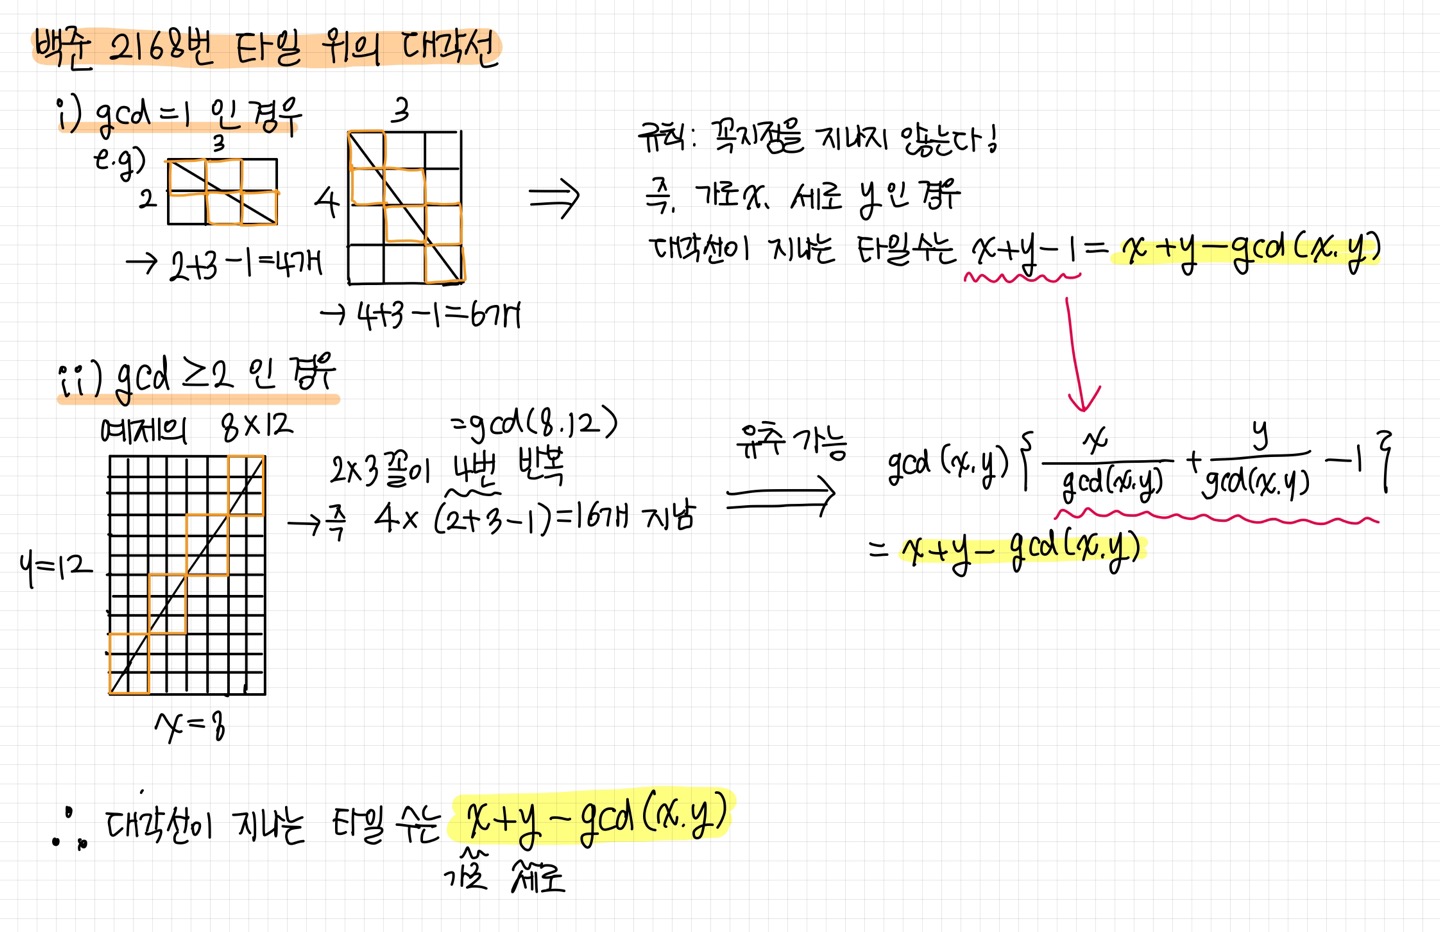 백준 2168번 타일 위의 대각선
i) gcd=1 인 경우
e.g)
3
2
→ 2+3-1=4개
3
4
→ 4+3-1=6개
⇒
규칙: 꼭지점을 지나지 않는다!
즉, 가로 x, 세로 y 인 경우
대각선이 지나는 타일수는 x+y-1 = x+y-gcd(x,y)
ii) gcd ≥2 인 경우
예제의 8×12
y=12
x=8
=gcd(8,12)
2×3 꼴이 4번 반복
→ 즉 4×(2+3-1)=16개 지남
유추 가능
⇒
gcd(x,y) { x/gcd(x,y) + y/gcd(x,y) -1 }
= x+y- gcd(x,y)
∴ 대각선이 지나는 타일 수는 x+y-gcd(x,y)
가로 세로